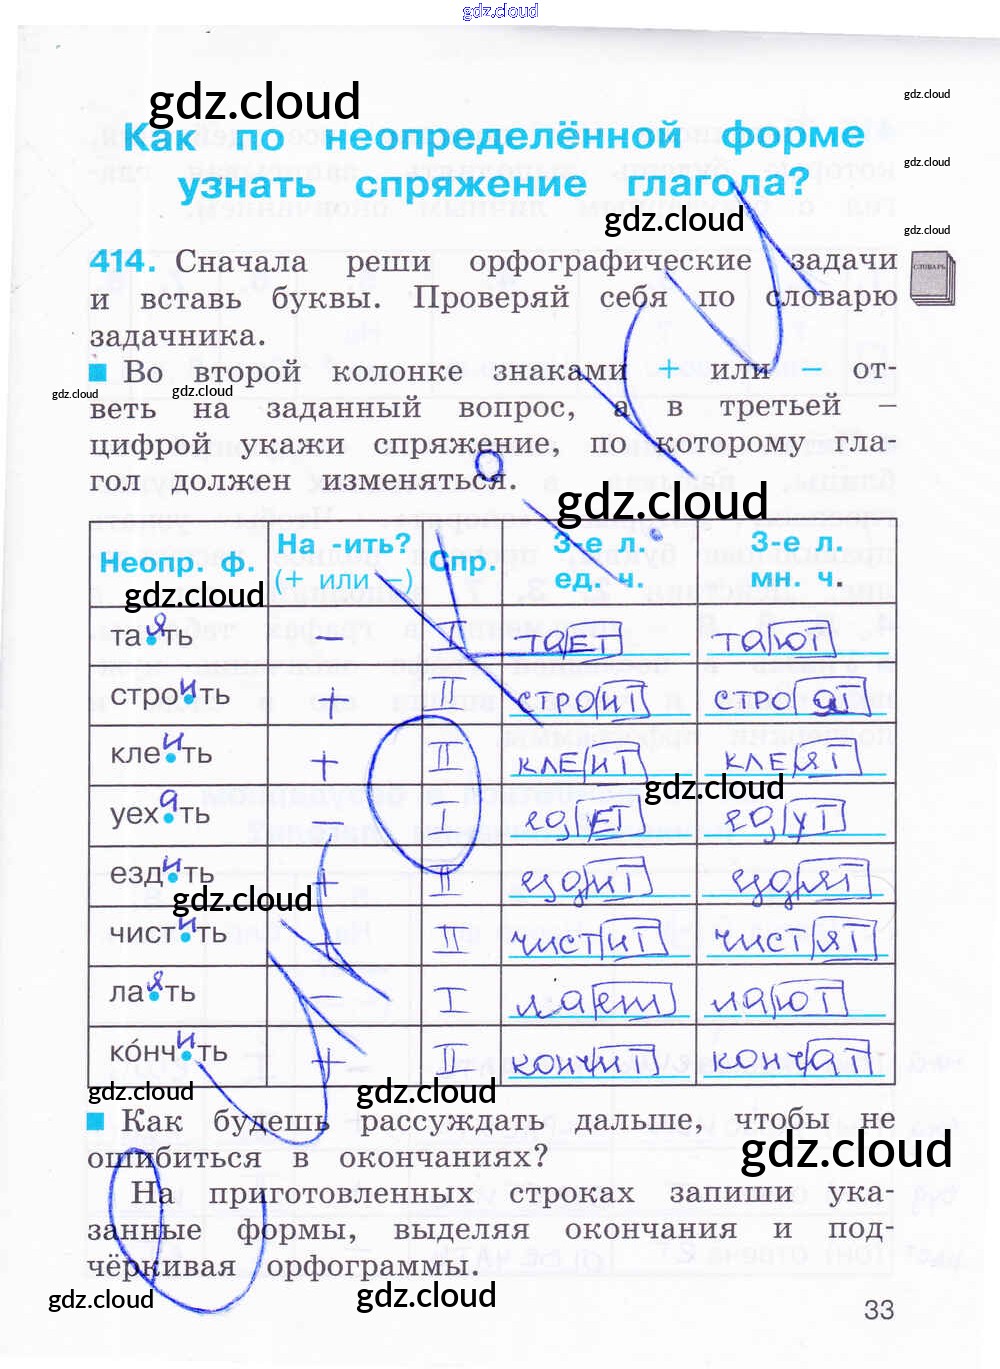 gdz.cloud
gdz.cloud
gdz.cloud
Как по неопределённой форме
gdz.cloud
узнать спряжение глагола?
gdz.cloud
gdz.cloud
414. Сначала реши орфографические задачи
СЛОВАРЬ
и вставь буквы. Проверяй себя по словарю
задачника.
Во второй колонке знаками + или – от-
gdz.cloud
gdz.cloud
веть на заданный вопрос, а в третьей –
цифрой укажи спряжение, по которому гла-
гол должен изменяться.
gdz.cloud
Неопр. ф. На -ить? (+ или –) Спр. 3-е л. ед. ч. 3-е л. мн. ч.
gdz.cloud
таять – I тает тают
строить + II строит строят
клеить + II клеит клеят
gdz.cloud
уехать – I едут
ездить + II
gdz.cloud
чистить + II чистит чистят
лаять – I лает лают
кóнчить + II кончит кончат
gdz.cloud
gdz.cloud
Как будешь рассуждать дальше, чтобы не
gdz.cloud
ошибиться в окончаниях?
На приготовленных строках запиши ука-
занные формы, выделяя окончания и под-
чёркивая орфограммы.
gdz.cloud
gdz.cloud
33